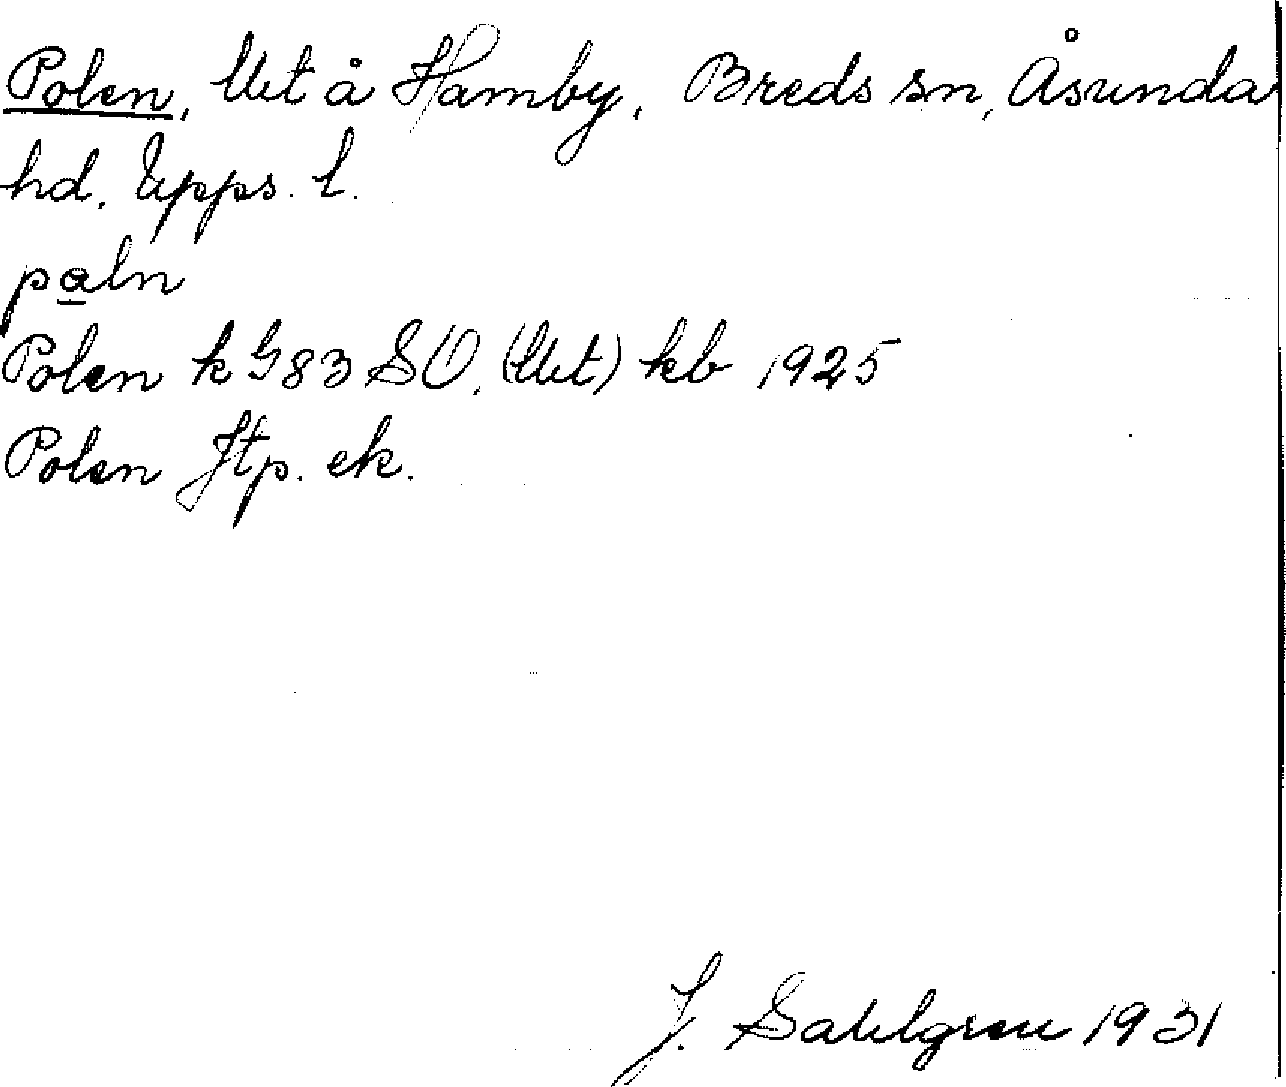 Polen, Utt å Hamby, Breds sn, Åsunda
hd. Upps. l.
paln
Polen k G83 SO, (Utt) kb 1925
Polen Jtp. ek.
J. Sahlgren 1931